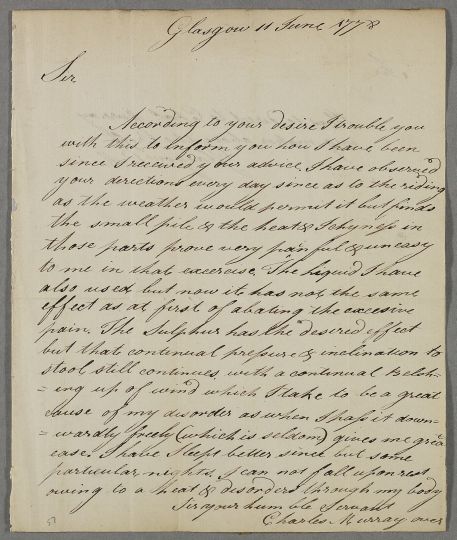 Glasgow 11 June 1778
Sir
According to your desire I trouble you
with this to Inform you how I have been
since I received your advice. I have observed
your directions every day since as to the riding
as the weather would permit it but finds
the small pile & the heat & Itchyngs in
those parts prove very painful & uneasy
to me in that excercise. The Liquid I have
also used but now it has not the same
effect as at first of abating the excesive
pain. The Sulphur has the desired effect
but that continual pressure & inclination to
stool still continues with a continual Belch-
=ing up of wind which I take to be a great
cause of my disorder as when I pass it down-
=wardly freely (which is seldom) gives me great
ease I have Sleept better since but some
particular nights I can not fall upon rest
owing to a Heat & disorders through my body
Sir your humble Servant
Charles Murray over